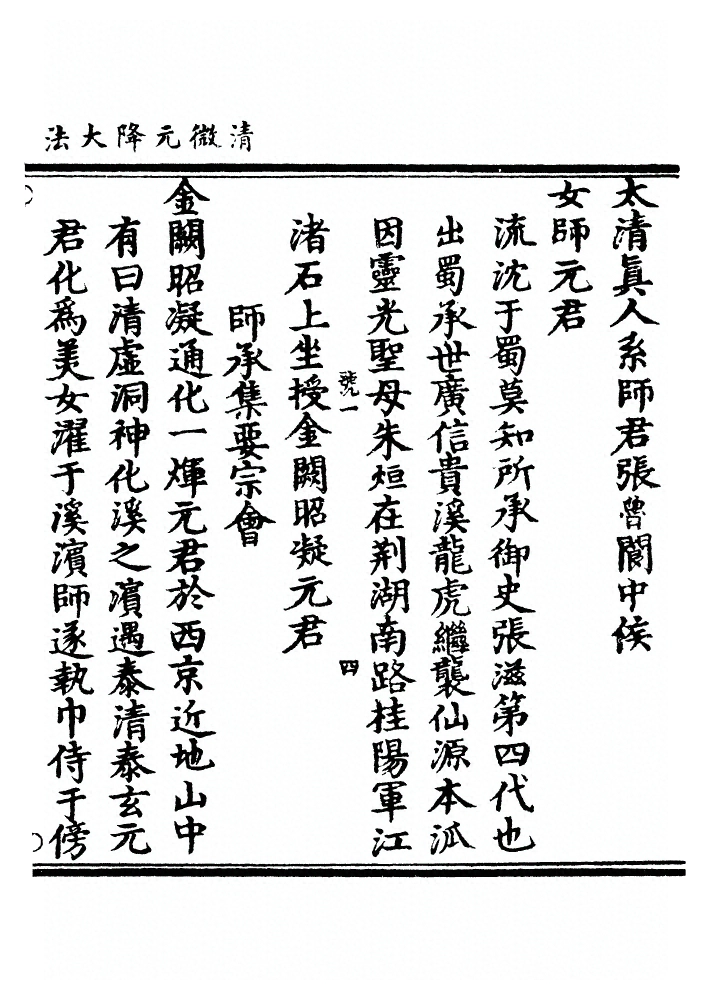 清微元降大法
太清眞人系師君張魯閬中侯
女師元君
流沈于蜀莫知所承御史張滋第四代也
出蜀承世廣信貴溪龍虎繼襲仙源本派
因靈光聖母朱烜在荆湖南路桂陽軍江
號一
四
渚石上坐授金闕昭凝元君
師承集要宗會
金闕昭凝通化一煇元君於西京近地山中
有曰清虛洞神化溪之濱遇泰清泰玄元
君化爲美女濯于溪濱師遂執巾侍于傍